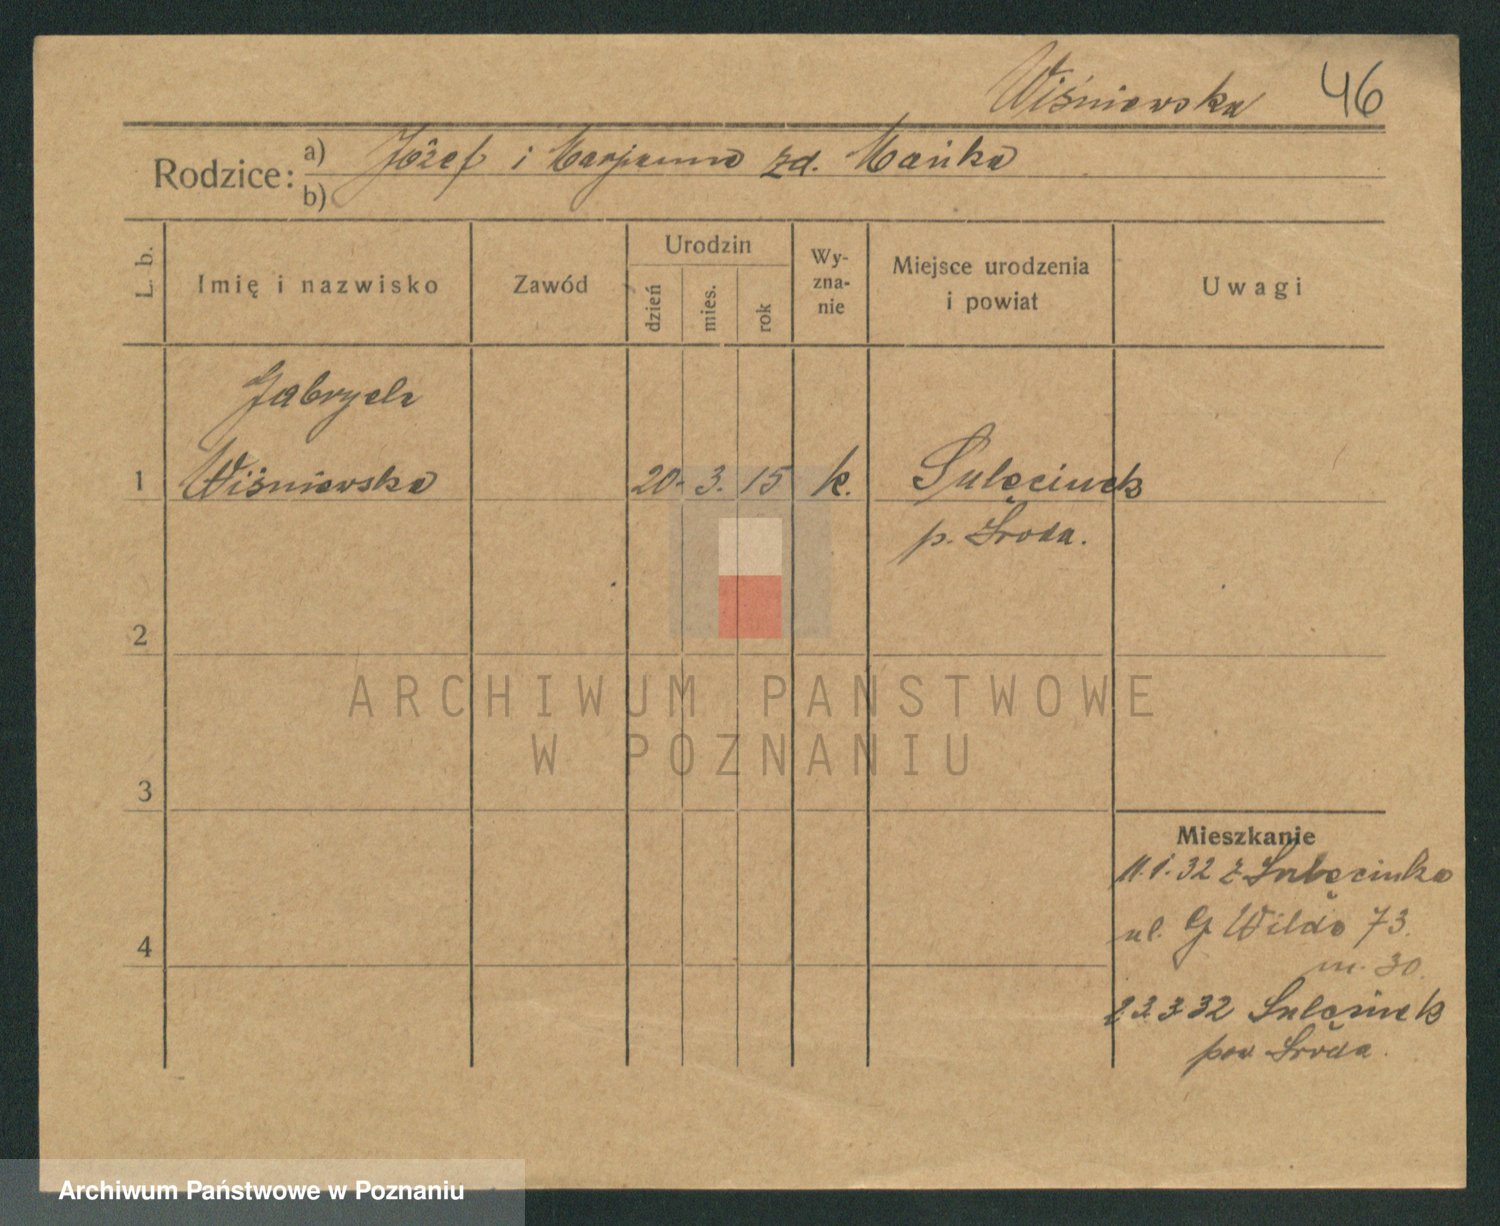 Wiśniewska 46
Rodzice: a) Józef i Marjanna zd. Mańka
b)
L. b.
Imię i nazwisko
Zawód
Urodzin
dzień
mies.
rok
Wy-
zna-
nie
Miejsce urodzenia
i powiat
Uwagi
Gabryela
1 Wiśniewska 20. 3. 15 k. Sulęcinek
p. Środa.
2
3
4
Mieszkanie
11.1.32 z Sulęcinka
ul. G Wilda 73.
m. 30.
23.3.32 Sulęcinek
pow Środa.
ARCHIWUM PAŃSTWOWE
W POZNANIU
Archiwum Państwowe w Poznaniu